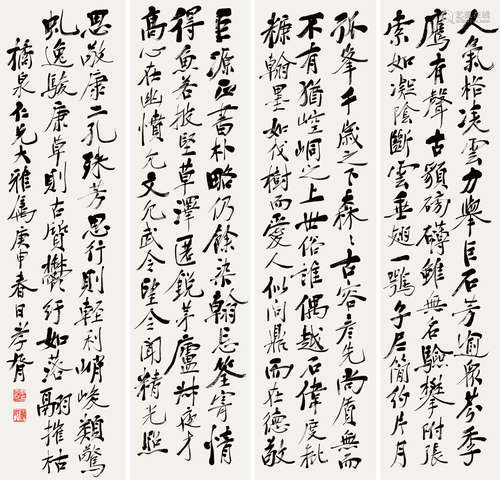 人氣格淩雲力舉巨石芳逾眾芬季
鷹有聲古貌磅礡雖無名驗攀附張
索如凝陰斷雲垂翅一鶚子尼簡約片月
孤峯千歲之下森森古容彥先尚質無而
不有猶崆峒之上世俗誰偶越石偉度秕
糠翰墨如伐樹而愛人似問鼎而在德敬
巨源正朴略仍餘染翰忘筌寄情
得魚若披堅草澤匿銳茅廬叔夜才
高心在幽憤允文允武令望令聞精光照
思敬康二孔殊芳思行則輕利峭峻類驚
虬逸駿康草則古質鬱紆如落翮摧枯
橘泉仁兄大雅屬庚申春日孝胥